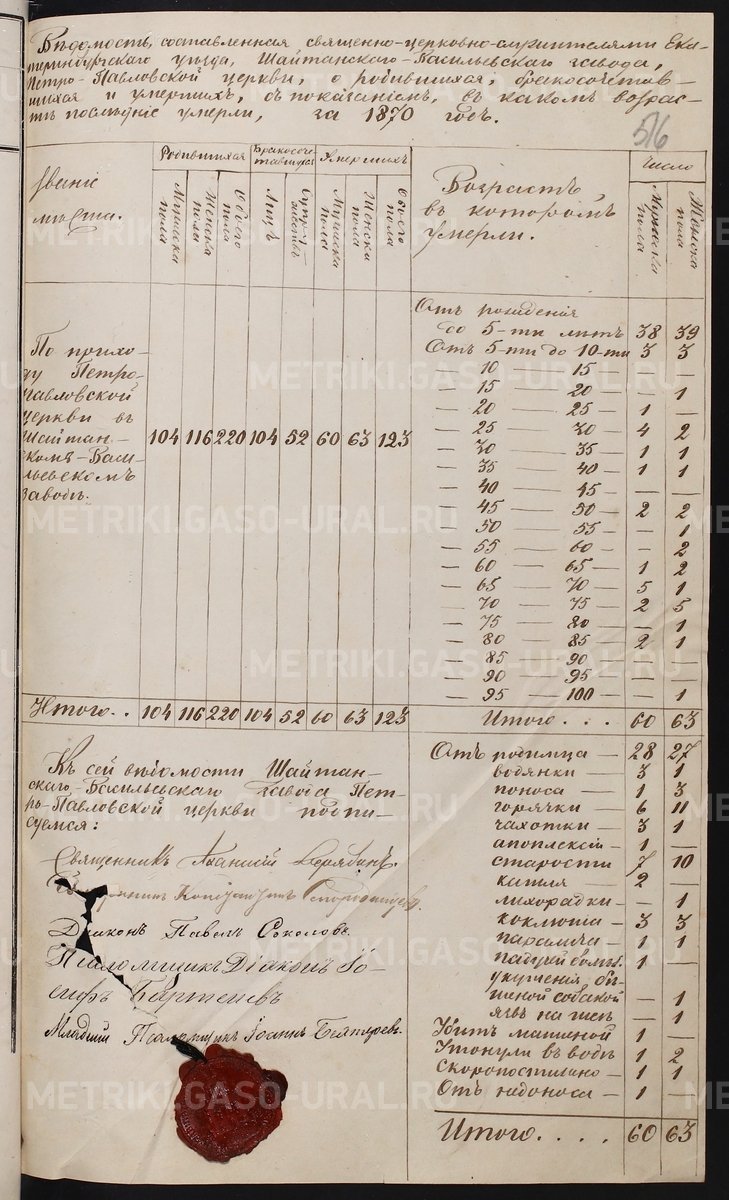 Вѣдомость, составленная священно-церковно-служителями Ека-
теринбургскаго уѣзда, Шайтанскаго-Васильевскаго завода,
Петро-Павловской церкви, о родившихся, бракосочетав-
шихся и умершихъ, съ показаніемъ, въ какомъ возрас-
тѣ послѣдніе умерли, за 1870 годъ.
516
Званіе
мѣста.
Родившихся
Мужска пола
Женска пола
Обоего пола
Бракосоче-
тавшихся
Лицъ
Супру-
жествъ
Умершихъ
Мужска пола
Женска пола
Обоего пола
Возрастъ
въ которомъ
умерли.
Число
Мужска пола
Женска пола
По прихо-
ду Петро-
павловской
церкви въ
Шайтан-
скомъ-Васи-
льевскомъ
заводѣ.
104 116 220 104 52 60 63 123
Отъ рожденія
до 5-ти лѣтъ 38 39
Отъ 5-ти до 10-ти 3 3
— 10 — 15 — — —
— 15 — 20 — — 1
— 20 — 25 — 1 —
— 25 — 30 — 4 2
— 30 — 35 — 1 1
— 35 — 40 — 1 1
— 40 — 45 — — —
— 45 — 50 — 2 2
— 50 — 55 — — 1
— 55 — 60 — — 2
— 60 — 65 — 1 2
— 65 — 70 — 5 1
— 70 — 75 — 2 5
— 75 — 80 — — 1
— 80 — 85 — 2 1
— 85 — 90 — — —
— 90 — 95 — — —
— 95 — 100 — — 1
Итого.. 104 116 220 104 52 60 63 123
Итого.... 60 63
Къ сей вѣдомости Шайтан-
скаго-Васильевскаго завода Пет-
ро-Павловской церкви подпи-
суемся:
Священникъ
Священникъ
Діаконъ Павелъ Соколовъ
Псаломщикъ Діаконъ Іо-
сифъ
Младшій Псаломщикъ Іоаннъ
Отъ родимца — 28 27
водянки — 3 1
поноса — 1 3
горячки — 6 11
чахотки — 3 1
апоплексіи 1 —
старости 7 10
кашля — 2 —
лихорадки — — 1
коклюша — 3 3
паралича — 1 1
падучей болѣз. 1 —
укушенія бѣ-
шеной собакой — 1
язвѣ на шеѣ — 1
Убитъ машиной 1 —
Утонули въ водѣ 1 2
Скоропостижно — 1 1
Отъ 1 —
Итого.... 60 63
METRIKI.GASO-URAL.RU